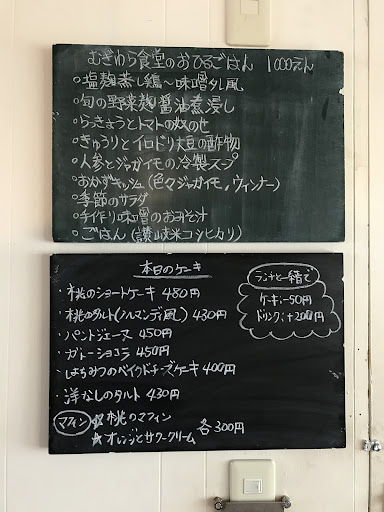 むぎわら食堂のおひるごはん 1000えん
○塩麹蒸し鶏〜味噌タレ風
○旬の野菜麹醤油煮浸し
○らっきょうとトマトの奴のせ
○きゅうりとイロドリ大豆の酢物
○人参とジャガイモの冷製スープ
○おかずキッシュ(色々ジャガイモ,ウィンナー)
○季節のサラダ
○手作り味噌のおみそ汁
○ごはん(讃岐米コシヒカリ)
本日のケーキ
・桃のショートケーキ 480円
・桃のタルト(ノルマンディ風) 430円
・パンドジェーヌ 450円
・ガトーショコラ 450円
・はちみつのベイクドチーズケーキ 400円
・洋なしのタルト 430円
マフィン ★桃のマフィン
★オレンジとサワークリーム 各300円
ランチと一緒で
ケーキ:-50円
ドリンク:+200円